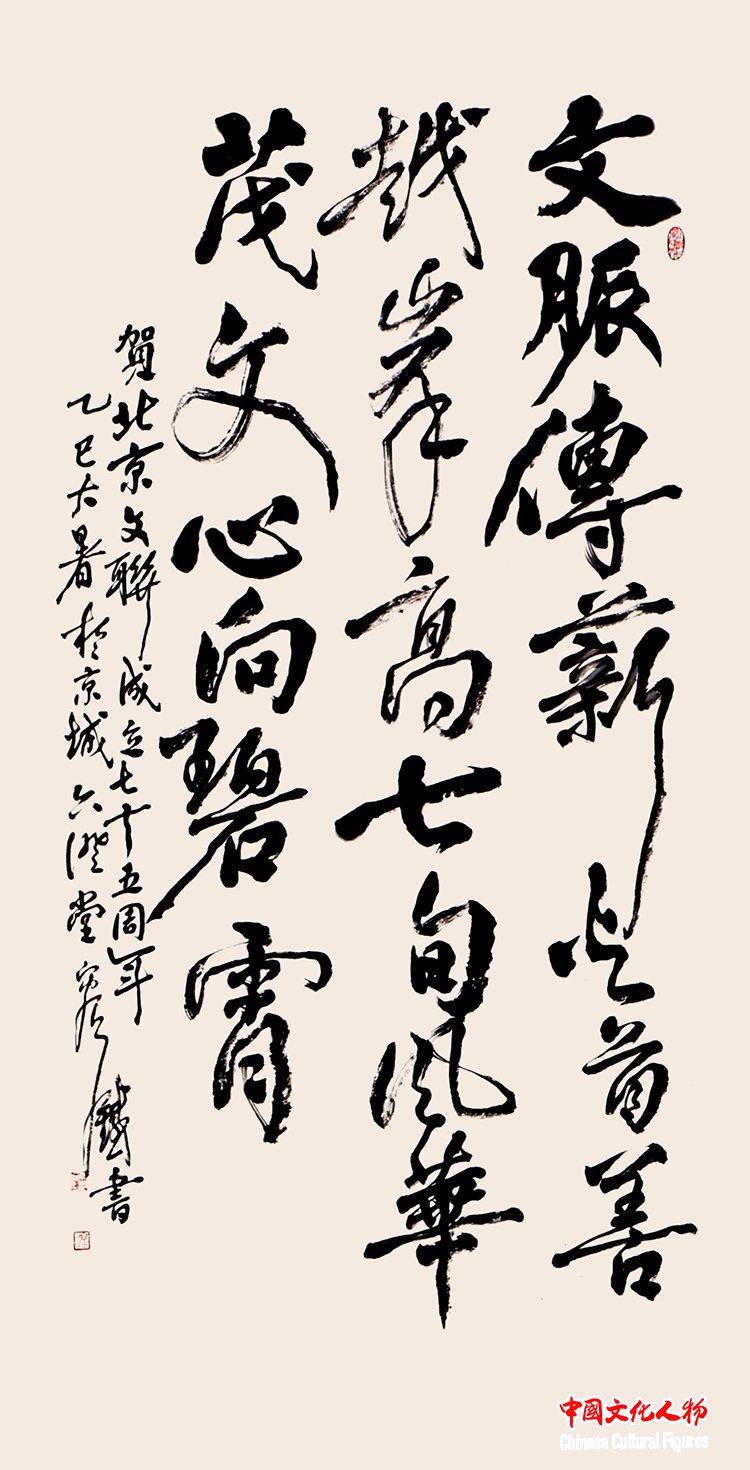 文脈傳薪火首善
越峯高七旬風華
茂文心向碧霄
賀北京文聯成立七十五周年
乙巳大暑於京城六堂鐵書
中國文化人物
Chinese Cultural Figures